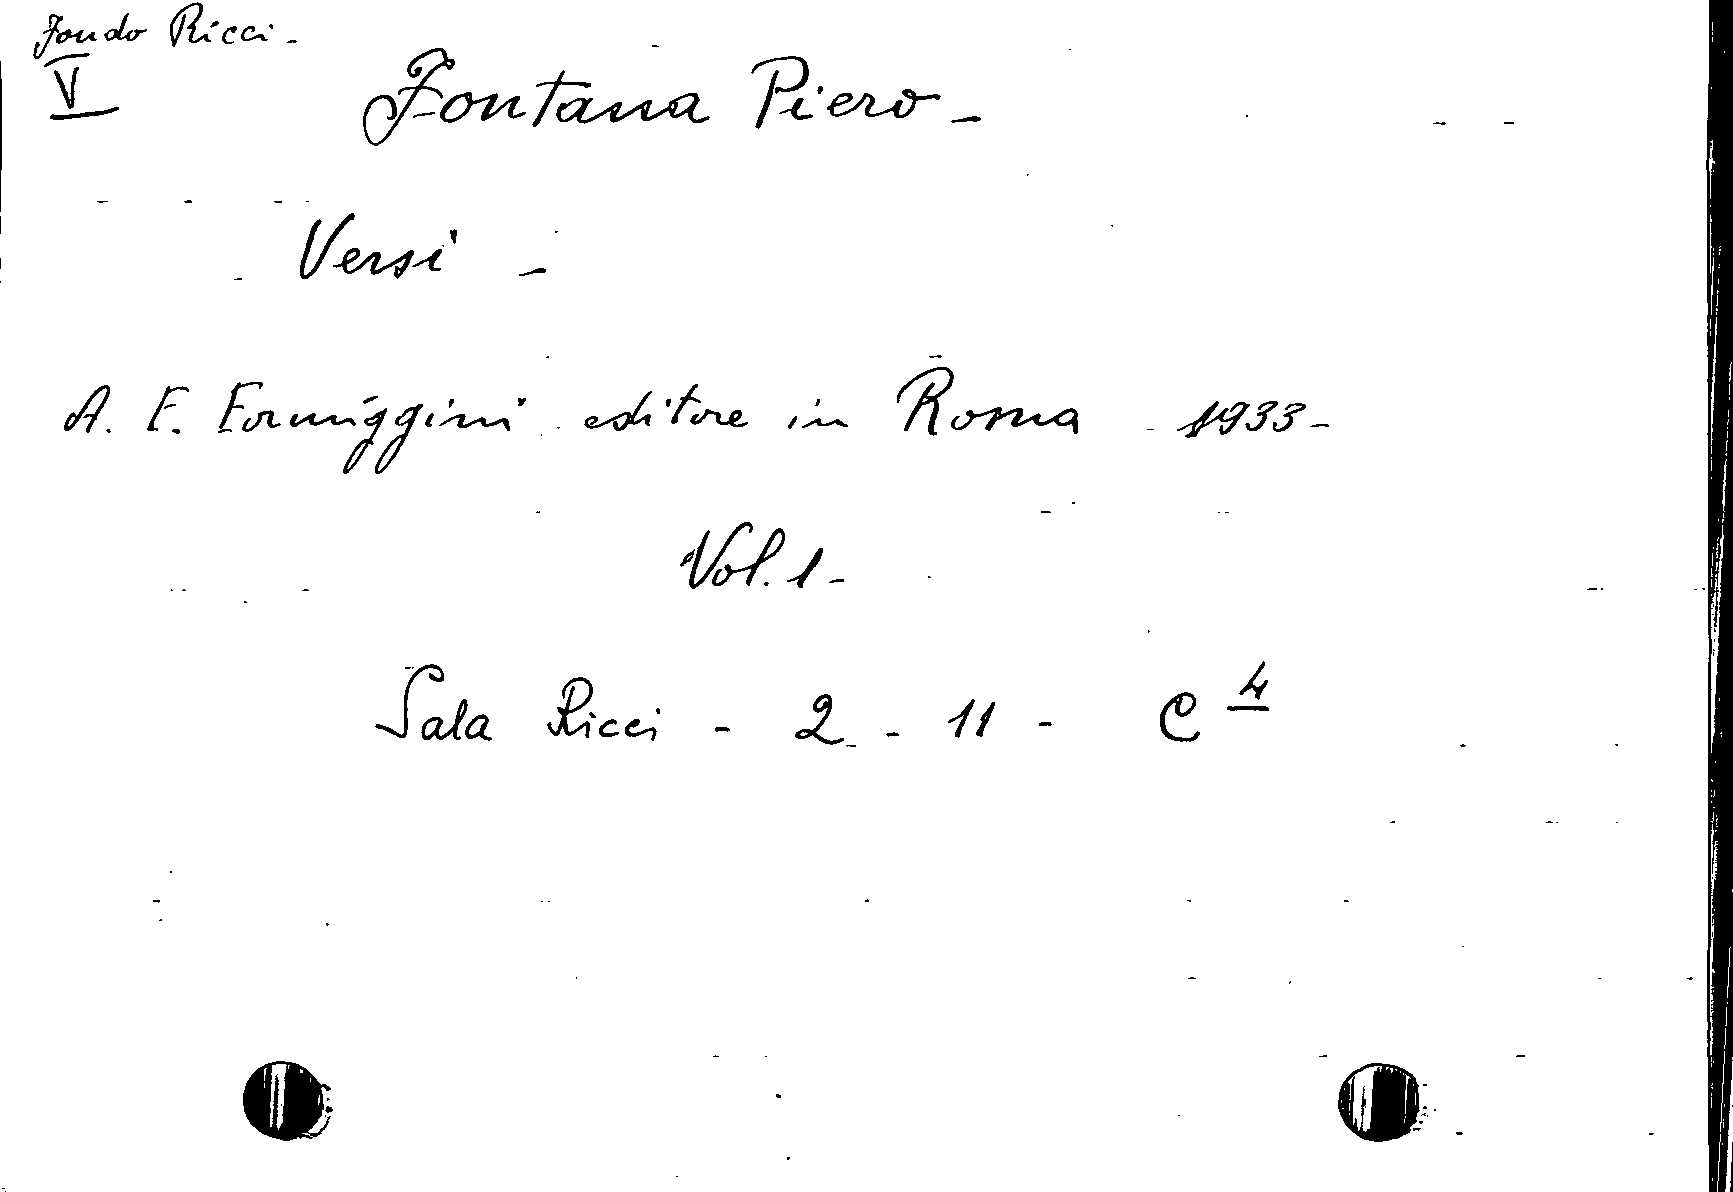 Fondo Ricci -
V
Fontana Piero -
Versi -
A. F. Formiggini editore in Roma - 1933 -
Vol. 1 -
Sala Ricci - 2 - 11 - C 4